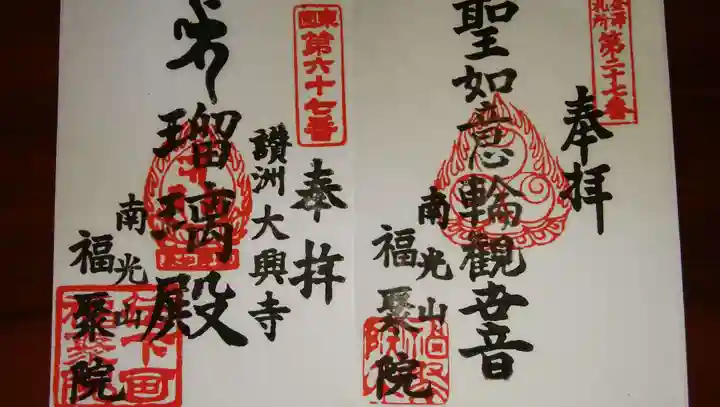 金澤
札所
第二十七番
奉拝
聖如意輪觀世音
南光山
福聚院
東国
第六十七番
奉拝
讃洲大興寺
瑠璃殿
南光山
福聚院